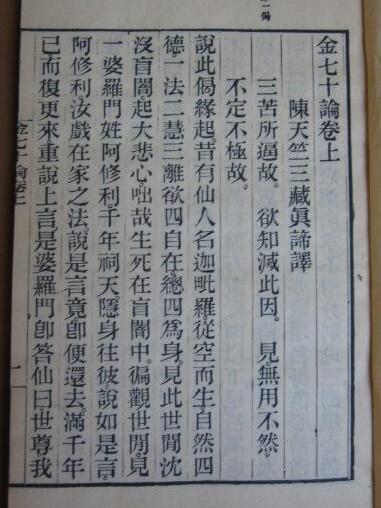 一偈
金七十論卷上
陳天竺三藏眞諦譯
三苦所逼故。欲知滅此因。見無用不然。
不定不極故。
說此偈緣起。昔有仙人名迦毗羅從空而生。自然四
德。一法二慧三離欲四自在。總四爲身。見此世閒沈
沒盲闇起大悲心。咄哉生死在盲闇中。徧觀世閒。見
一婆羅門姓阿修利。千年祠天。隱身往彼說如是言。
阿修利汝戲在家之法。說是言竟。卽便還去。滿千年
已而復更來重說上言。是婆羅門卽答仙曰世尊我
金七十論卷上
一